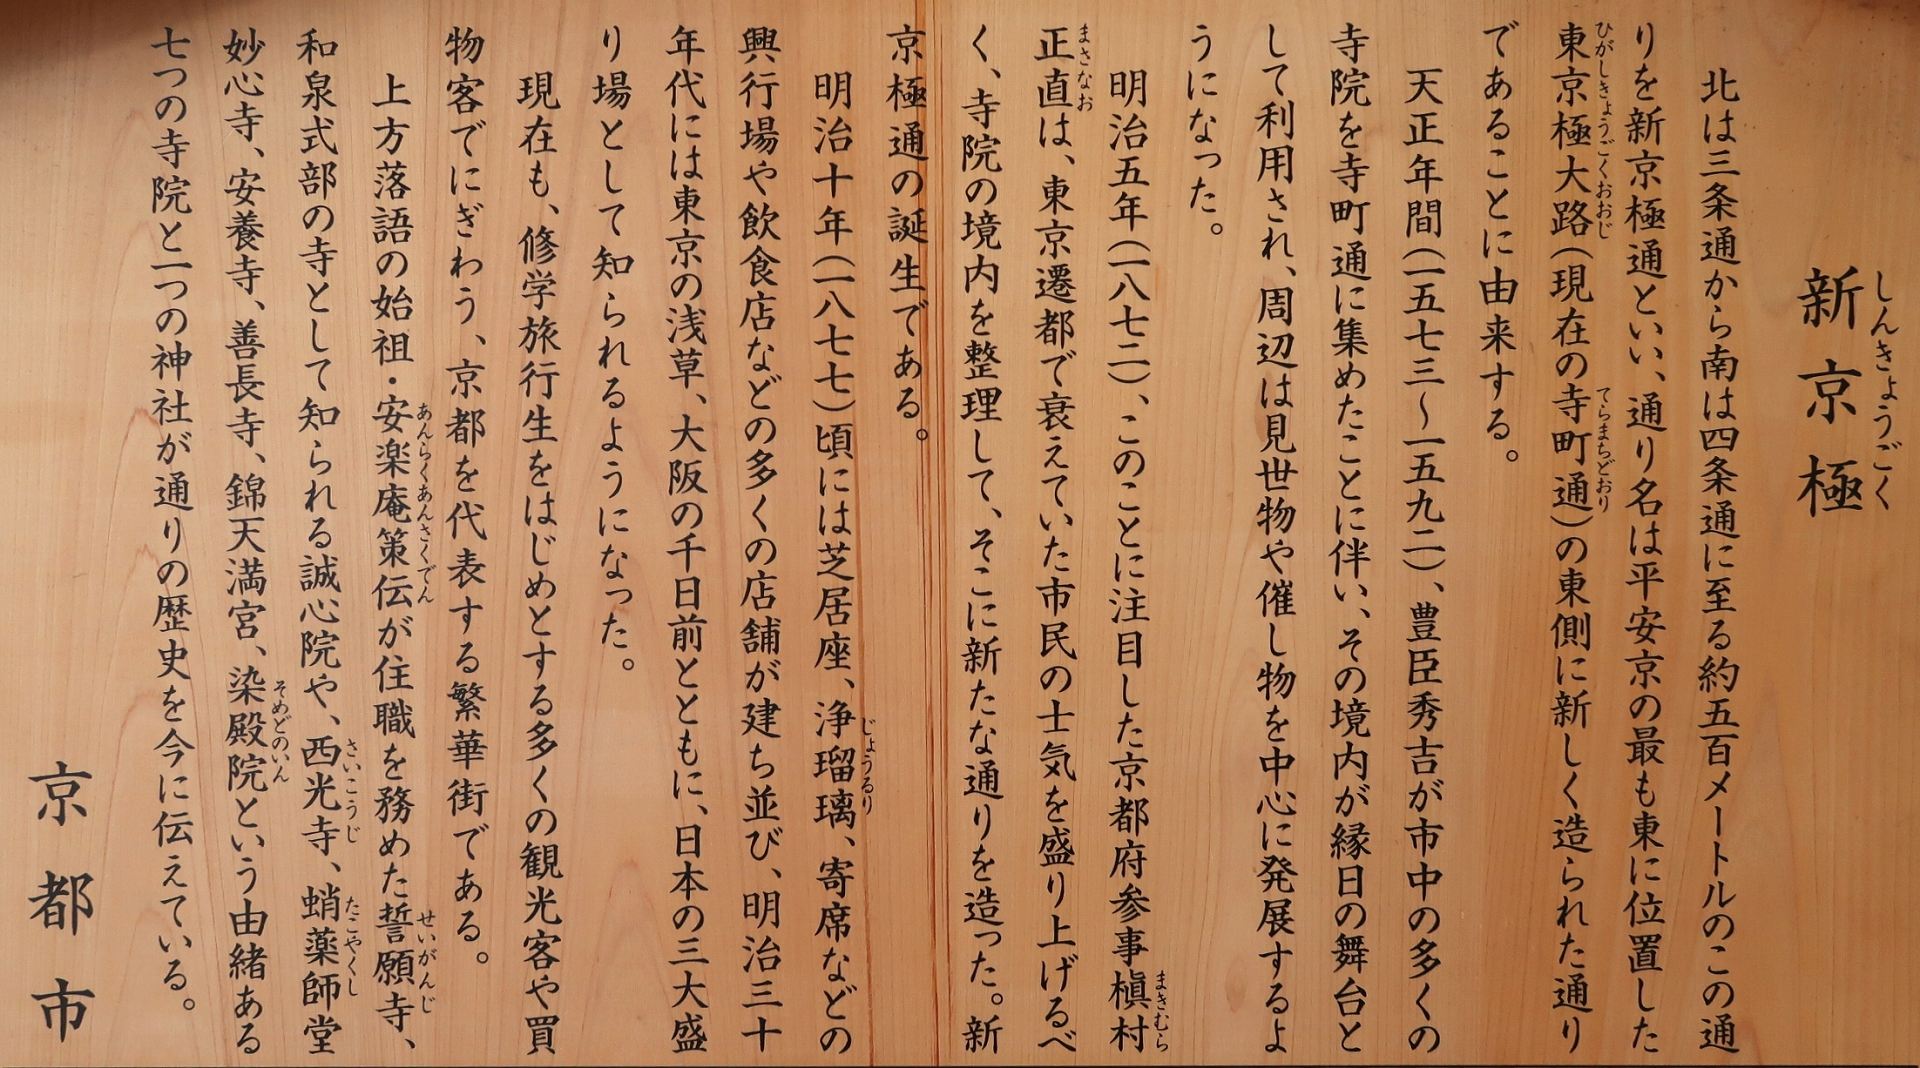 新京極
しんきょうごく
北は三条通から南は四条通に至る約五百メートルのこの通
りを新京極通といい、通り名は平安京の最も東に位置した
東京極大路(現在の寺町通)の東側に新しく造られた通り
ひがしきょうごくおおじ
てらまちどおり
であることに由来する。
天正年間(一五七三〜一五九二)、豊臣秀吉が市中の多くの
寺院を寺町通に集めたことに伴い、その境内が縁日の舞台と
して利用され、周辺は見世物や催し物を中心に発展するよ
うになった。
明治五年(一八七二)、このことに注目した京都府参事槇村
まきむら
正直は、東京遷都で衰えていた市民の士気を盛り上げるべ
まさなお
く、寺院の境内を整理して、そこに新たな通りを造った。新
京極通の誕生である。
明治十年(一八七七)頃には芝居座、浄瑠璃、寄席などの
じょうるり
興行場や飲食店などの多くの店舗が建ち並び、明治三十
年代には東京の浅草、大阪の千日前とともに、日本の三大盛
り場として知られるようになった。
現在も、修学旅行生をはじめとする多くの観光客や買
物客でにぎわう、京都を代表する繁華街である。
上方落語の始祖・安楽庵策伝が住職を務めた誓願寺、
あんらくあんさくでん
せいがんじ
和泉式部の寺として知られる誠心院や、西光寺、蛸薬師堂
さいこうじ
たこやくし
妙心寺、安養寺、善長寺、錦天満宮、染殿院という由緒ある
そめどのいん
七つの寺院と一つの神社が通りの歴史を今に伝えている。
京都市